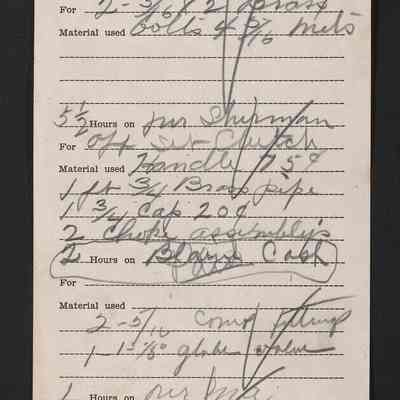 For 2 - 3/16 x 2 brass
Material used bolts 4 3/16 nuts
5 1/2 Hours on our Sherman
For Off Set Clutch
Material used Handle 75¢
1 ft 3/4 Brass pipe
1 3/4 cap 20¢
2 choke assembly's
2 Hours on Cash
For
Material used
2 - 5/16 comp fittings
1 - 1 1/8" globe valve
1 Hours on our